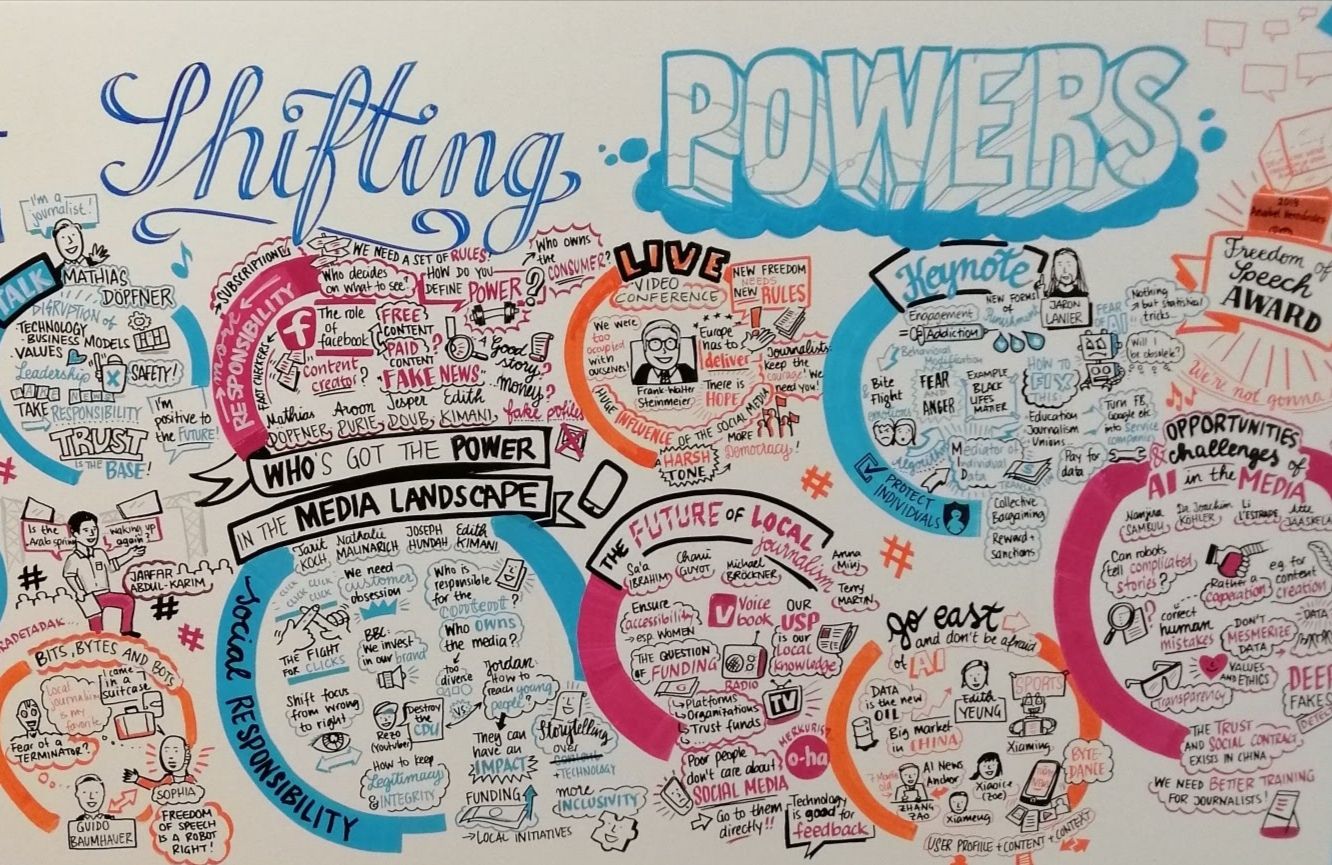 Shifting POWERS
I'm a
journalist!
TALK
MATHIAS
DÖPFNER
DISRUPTION of
TECHNOLOGY
BUSINESS MODELS
VALUES
Leadership
SAFETY!
FAKE NEWS
TAKE RESPONSIBILITY
TRUST
IS THE BASE!
I'm
positive to
the FUTURE!
Is the
Arab spring
waking up
again?
JAAFAR
ABDUL-KARIM
#
#
#
#
BITS, BYTES AND BOTS
Local
journalism
is my
favorite
I came
in a
suitcase
Fear of a
TERMINATOR?
SOPHIA
GUIDO
BAUMHAUER
FREEDOM
OF SPEECH
IS A ROBOT
RIGHT!
SUBSCRIPTION
more
RESPONSIBILITY
FACT CHECKER
WE NEED A SET OF RULES!
Who decides
on what to see?
HOW DO YOU
DEFINE POWER
?
Who owns
the
CONSUMER?
f
The role
of
facebook
content
creator?
FREE
CONTENT
PAID
CONTENT
?
"FAKE NEWS"
Good
story?
money?
fake profiles
Mathias
DÖPFNER,
Aroon
PURIE,
Jesper
DOUB,
Edith
KIMANI,
WHO'S GOT THE POWER
IN THE MEDIA LANDSCAPE
Social RESPONSIBILITY
Jarit
KOCH
Nathalie
MALINARICH
JOSEPH
HUNDAH
Edith
KIMANI
CLICK CLICK
CLICK CLICK
THE FIGHT
FOR CLICKS
We need
customer
obsession
BBC:
We invest
in our brand
Who is
responsible
for the
content?
Who OWNS
the media?
too
diverse
Shift focus
from wrong
to right
Rezo
(Youtuber)
Destroy
the
CDU
VS
Jordan:
How to
reach young
people?
How to keep
Legitimacy
& INTEGRITY
They can
have an
IMPACT
Storytelling
over
content
+ TECHNOLOGY
more
INCLUSIVITY
FUNDING
LOCAL INITIATIVES
LIVE
VIDEO
CONFERENCE
NEW FREEDOM
NEEDS
NEW RULES
We were
too
occupied
with
ourselves!
Frank-Walter
Steinmeier
Europe
has to
deliver
There is
HOPE
Journalists:
keep the
courage! We
need you!
HUGE
INFLUENCE
OF THE SOCIAL MEDIA
HARSH
TONE
MORE
Democracy!
#
#
THE FUTURE OF LOCAL
journalism
Sa'a
IBRAHIM
Chani
GUYOT
Michael
BRÖCKNER
Amna
Terry
MARTIN
Ensure
accessibility
esp. WOMEN
V
Voice
book
OUR
USP
is our
Local
knowledge
THE QUESTION
OF FUNDING
RADIO
TV
Platforms
Organizations
Trust funds
Poor people
don't care about
SOCIAL MEDIA
MERKURIST
o-ha
Go to them
directly!!
Technology
is good for
feedback
Keynote
JARON
LANIER
Engagement
= Addiction
NEW FORMS
of
Punishment
FEAR
OF AI
Nothing
but statistical
tricks
Will I
be obsolete?
Behavioral Modification
Bite
Flight
emotions
FEAR
AND
ANGER
EXAMPLE
BLACK
LIVES
MATTER
HOW TO
FIX
THIS:
Education
Journalism
Unions
Turn FB,
Google etc.
into Service
companies
Algorithm
Mediator of
Individual
Data
Pay for
data
PROTECT
INDIVIDUALS
Collective
Bargaining
Reward +
sanctions
go east
and don't be afraid
of AI
DATA
is the new
OIL
Edith
YEUNG
SPORTS
Xiaming
Big market
in CHINA
AI News
Anchor
ZHANG
ZAO
Xiaoice
(Zoe)
Xiameng
BYTE-
DANCE
USER PROFILE + CONTENT + CONTEXT
2019
Anabel Hernández
Freedom of
Speech
AWARD
We're not gonna
OPPORTUNITIES
& challenges of
AI in the MEDIA
Nanjira
SAMBULI
Dr. Joachim
KÖHLER
Li
L'ESTRADE
JAASKELA
Can robots
tell complicated
stories?
Rather a
cooperation
e.g. for
content
creation
?
correct
human
mistakes
DON'T
MESMERIZE
DATA
DATA
Transparency
VALUES
AND ETHICS
DEEP
FAKES
THE TRUST
AND SOCIAL CONTRACT
EXISTS IN CHINA
WE NEED BETTER TRAINING
FOR JOURNALISTS!